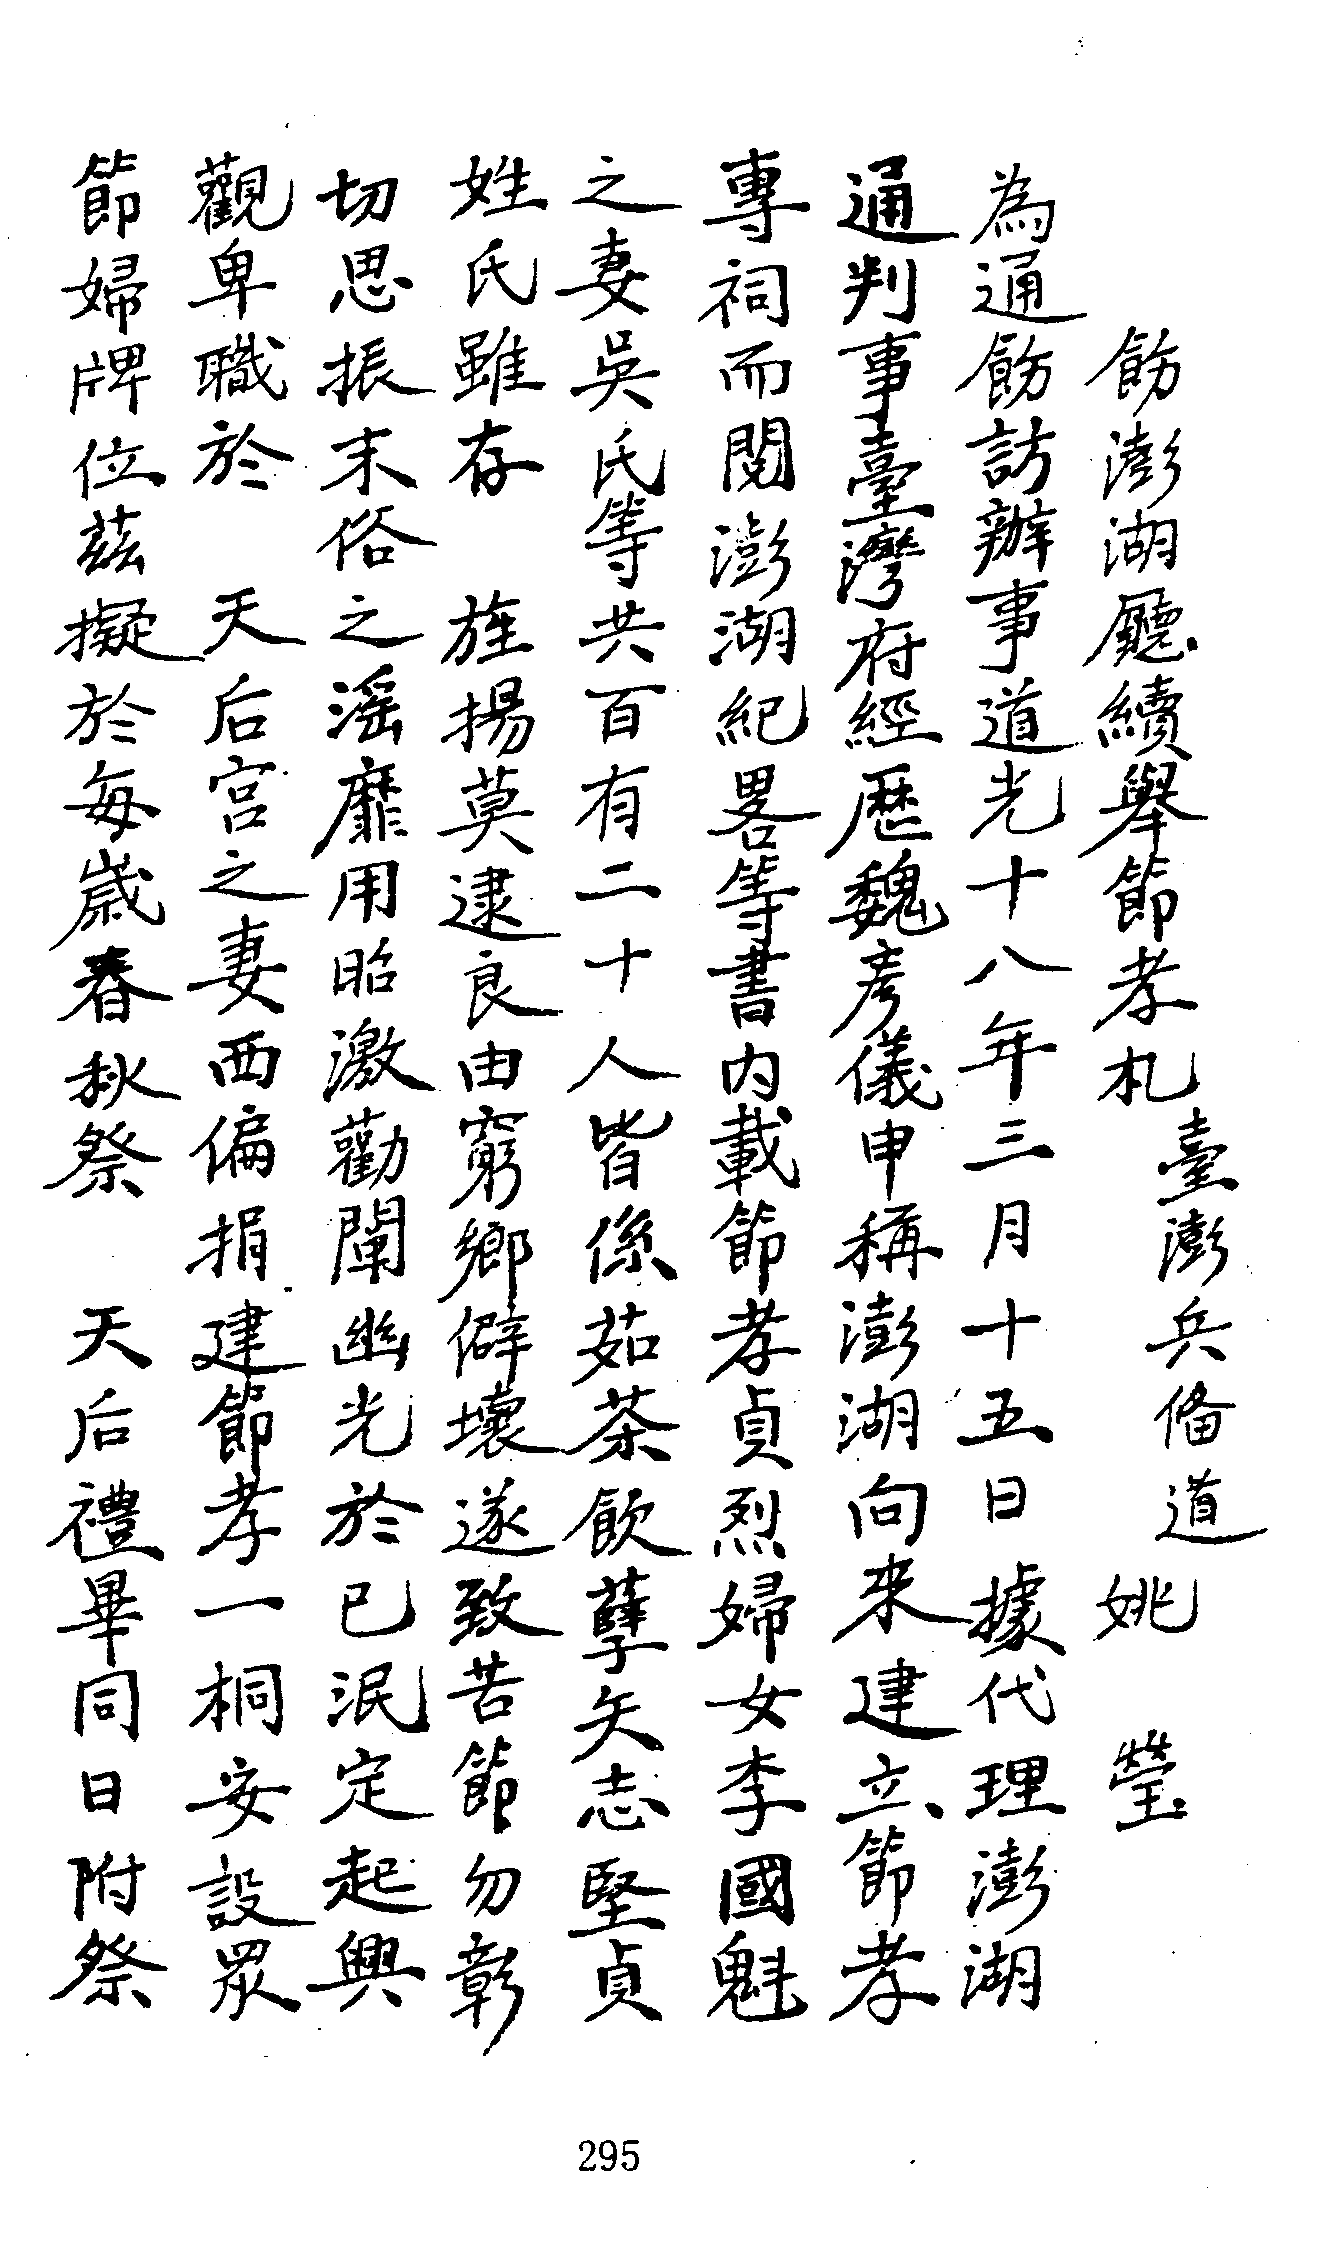 飭澎湖廳續舉節孝札 臺澎兵備道 姚 瑩
為通飭訪辦事道光十八年三月十五日據代理澎湖
通判事臺灣府經歷魏彥儀申稱澎湖向來建立節孝
專祠而閱澎湖紀畧等書內載節孝貞烈婦女李國魁
之妻吳氏等共百有二十人皆係茹茶飲孽矢志堅貞
姓氏雖存 旌揚莫逮良由窮鄉僻壤遂致苦節勿彰
切思振末俗之滛靡用昭激勸闡幽光於已泯定起興
觀卑職於 天后宮之妻西偏捐建節孝一桐安設眾
節婦牌位茲擬於每歲春秋祭 天后禮畢同日附祭
295